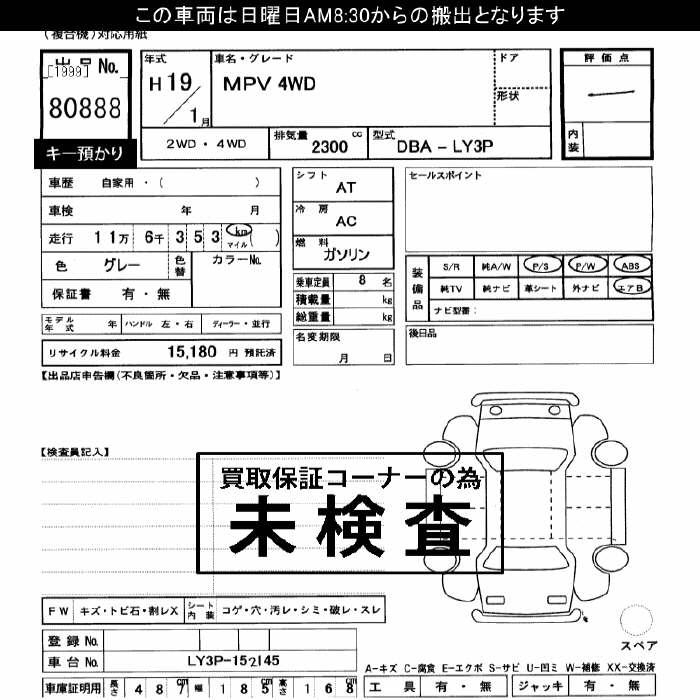 この車両は日曜日AM8:30からの搬出となります
(複合機)対応用紙
出品No.
[1999]
80888
キー預かり
年式
H19/1月
車名・グレード
MPV 4WD
ドア
形状
評価点
内装
2WD・4WD
排気量 2300 cc
型式 DBA-LY3P
車歴 自家用・( )
車検 年 月
走行 11万 6千 3 5 3 km マイル ( )
色 グレー 色替 カラーNo.
保証書 有・無
シフト AT
冷房 AC
燃料 ガソリン
乗車定員 8 名
積載量 kg
総重量 kg
名変期限 月 日
セールスポイント
装備品
S/R 純A/W P/S P/W ABS
純TV 純ナビ 革シート 外ナビ エアB
ナビ型番:
後日品
モデル年式 年 ハンドル 左・右 ディーラー・並行
リサイクル料金 15,180 円 預託済
【出品店申告欄(不良箇所・欠品・注意事項等)】
【検査員記入】
買取保証コーナーの為
未検査
FW キズ・トビ石・割レX シート内装 コゲ・穴・汚レ・シミ・破レ・スレ
登録No.
車台No. LY3P-152145
車庫証明用 長さ 487cm 幅 185cm 高さ 168
スペア
A-キズ C-腐食 E-エクボ S-サビ U-凹ミ W-補修 XX-交換済
工具 有・無 ジャッキ 有・無